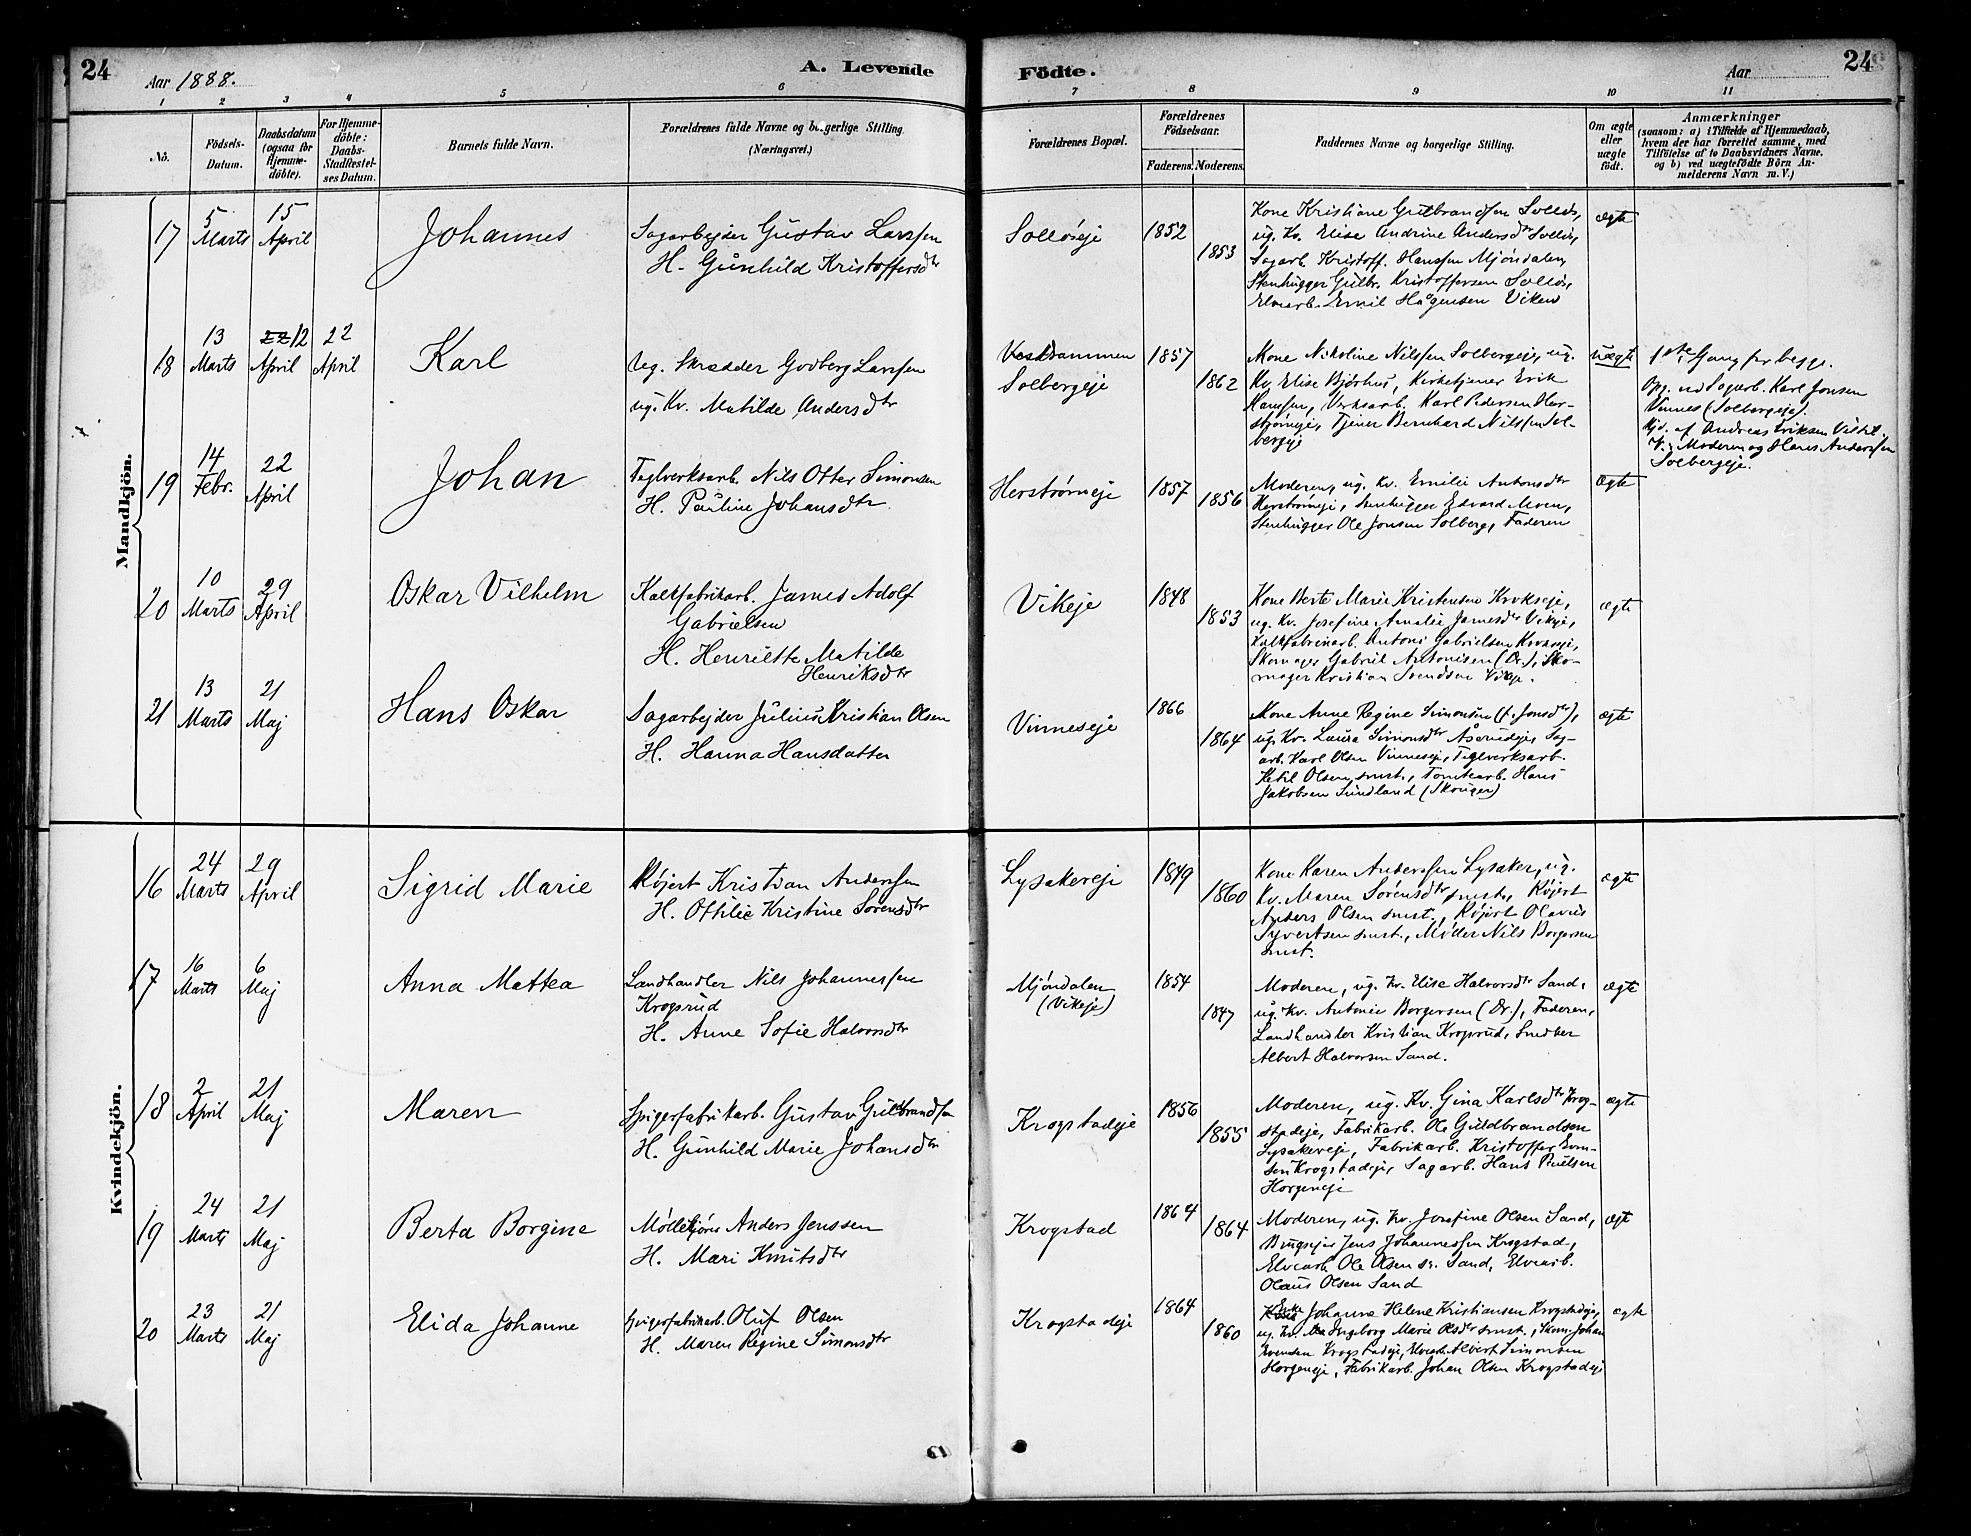 24
Aar 1888.
A. Levende
Födte.
Aar
24
1 2 3 4 5 6 7 8 9 10 11
No.
Födsels-
Datum.
Daabsdatum
(ogsaa for
Hjemme-
döbte).
For Hjemme-
döbte:
Daabs-
Stadfæstel-
ses Datum.
Barnets fulde Navn.
Forældrenes fulde Navne og borgerlige Stilling.
(Næringsvei.)
Forældrenes Bopæl.
Forældrenes
Födselsaar.
Faderens. Moderens.
Faddernes Navne og borgerlige Stilling.
Om ægte
eller
uægte
födt.
Anmærkninger
(saasom: a) i Tilfælde af Hjemmedaab,
hvem der har forrettet samme, med
Tilföielse af to Daabsvidners Navne.
og b) ved uægtefödte Börn An-
melderens Navn m. V.)
Mandkjön.
17
5 Marts
15 April
Johannes
Sagarbejder Gustav Larssen
H. Gunhild Kristoffersdtr
Solløseje
1852
1853
Kone Kristiane Gulbrandsen Solløs,
ug. Kv. Elise Andrine Andersdtr Solløs,
Sagarb. Kristoff. Hanssen Mjøndalen,
Stenhugger Gulbr. Kristoffersen Solløs,
Elvearb. Emil Hågensen Viken
ægte
18
13 Marts
22 12 April
22 April
Karl
Ug. Skrædder Godberg Larssen
ug. Kv. Matilde Andersdtr
Solbergeje
1857
1862
Kone Nikoline Nilssen Solbergeje, ug.
Kv. Elise Bjørhus, Kirketjener Erik
Hanssen, Verksarb. Karl Pedersen Her-
strømeje, Tjener Bernhard Nilssen Sol-
bergeje
uægte
1ste Gang for begge.
Opg. ved Sagarb. Karl Jonsen
Vinnes (Solbergeje).
Hjd. af Andreas Eriksen
V.: Moderen og Hans Anderssen
Solbergeje.
19
14 Febr.
22 April
Johan
Teglverksarb. Nils Otter Simonsen
H. Pauline Johansdtr
Herstrømeje
1857
1856
Moderen, ug. Kv. Emilie Antonsdtr
Herstrømeje, Stenhugger Edvard Moen,
Stenhugger Ole Jonsen Solberg, Faderen
ægte
20
10 Marts
29 April
Oskar Vilhelm
Kalkfabrikarb. James Adolf
Gabrielsen
H. Henriette Matilde
Henriksdtr
Vikeje
1848
1853
Kone Berte Marie Kristensen Krokseje,
ug. Kv. Josefine Amalie Jamesdtr Vikeje,
Kalkfabrikarb. Antoni Gabrielsen Krokseje,
Skomager Gabriel Antonisen (Dr.), Sko-
mager Kristian Svendsen Vikeje.
ægte
21
13 Marts
21 Maj
Hans Oskar
Sagarbejder Julius Kristian Olsen
H. Hanna Hansdatter
Vinneseje
1866
1864
Kone Anne Regine Simonsen (f. Jonsdtr),
ug. Kv. Laura Simonsdtr Åserudeje, Sag-
arb. Karl Olsen Vinneseje, Teglverksarb.
Ketil Olsen smst., Tomtearb. Hans
Jakobsen Sundland (Skouger)
ægte
Kvindekjön.
16
24 Marts
29 April
Sigrid Marie
Røjert Kristian Anderssen
H. Othilie Kristine Sørensdtr
Lysakereje
1849
1860
Kone Karen Anderssen Lysaker, ug.
Kv. Maren Sørensdtr smst., Røjert
Anders Olsen smst., Røjert Olavus
Syvertsen smst., Møller Nils Borgersen
smst.
ægte
17
16 Marts
6 Maj
Anna Mattea
Landhandler Nils Johannessen
Krogsrud
H. Anne Sofie Halvorsdtr
Mjøndalen
(Vikeje)
1854
1847
Moderen, ug. Kv. Elise Halvorsdtr Sand,
ug. Kv. Antonie Borgersen (Dr.), Faderen,
Landhandler Kristian Krogsrud, Snedker
Albert Halvorsen Sand.
ægte
18
2 April
21 Maj
Maren
Spigerfabrikarb. Gustav Guldbrandsen
H. Gunhild Marie Johansdtr
Krogstadeje
1856
1855
Moderen, ug. Kv. Gina Karlsdtr Krog-
stadeje, Fabrikarb. Ole Guldbrandsen
Lysakereje, Fabrikarb. Kristoffer Even-
sen Krogstadeje, Sagarb. Hans Paulsen
Horgeneje
ægte
19
24 Marts
21 Maj
Berta Borgine
Anders Jenssen
H. Mari Knutsdtr
Krogstad
1864
1864
Moderen, ug. Kv. Josefine Olsen Sand,
Brugsejer Jens Johannessen Krogstad,
Elvearb. Ole Olsen sr. Sand, Elvearb.
Olaus Olsen Sand
ægte
20
23 Marts
21 Maj
Elida Johanne
Spigerfabrikarb. Oluf Olsen
H. Maren Regine Simonsdtr
Krogstadeje
1864
1860
Enke Johanne Helene Kristiansen Krogstadeje,
ug. Kv. Ingeborg Marie Olsdtr smst., Skom. Johan
Evensen Krogstadeje, Elvearb. Alvert Simonsen
Horgeneje, Fabrikarb. Johan Olsen Krogstadeje
ægte